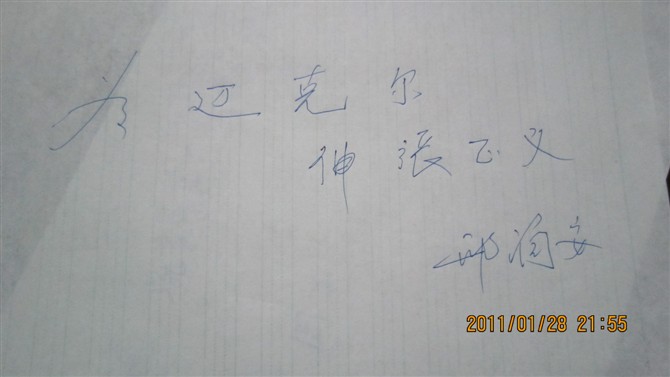 为迈克尔
伸张正义
2011/01/28 21:55